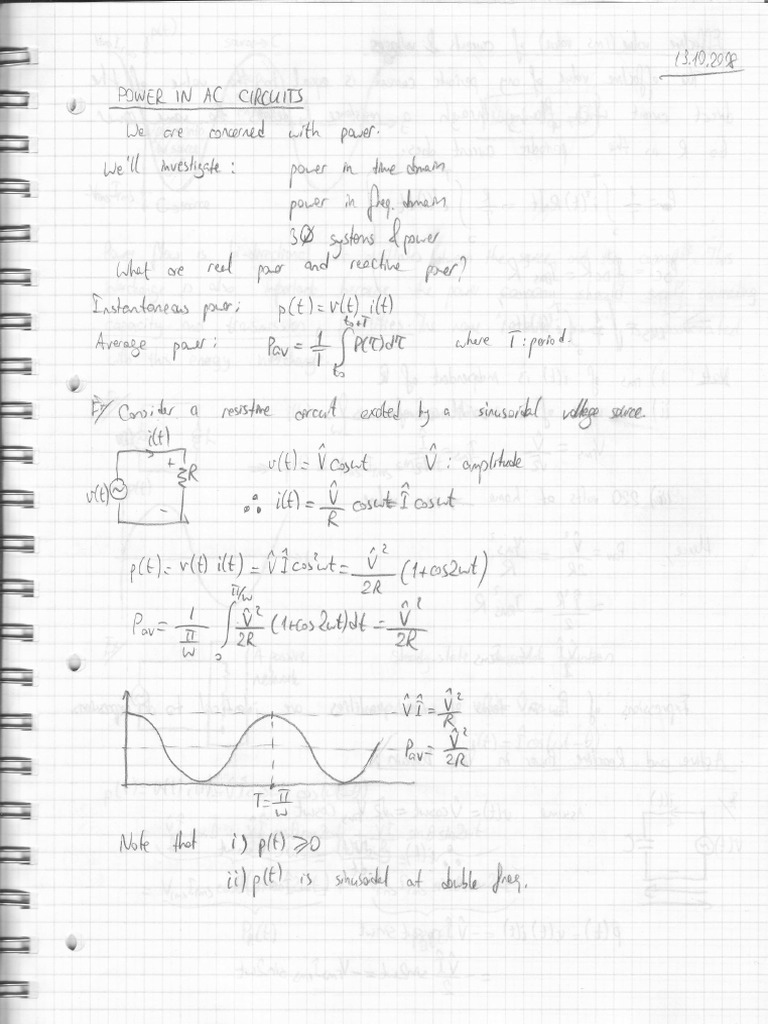 13.10.2008
POWER IN AC CIRCUITS
We are concerned with power.
We'll investigate: power in time domain
power in freq. domain
3Ø systems & power
What are real power and reactive power?
Instantaneous power: p(t) = v(t) i(t)
Average power: Pav = 1/T ∫_{t₀}^{t₀+T} P(τ)dτ where T: period.
Ex/ Consider a resistive circuit excited by a sinusoidal voltage source.
i(t)
+ R
v(t)
-
v(t) = V̂ cosωt V̂: amplitude
∴ i(t) = V̂/R cosωt = Î cosωt
p(t) = v(t) i(t) = V̂ Î cos²ωt = V̂²/2R (1+cos2ωt)
Pav = 1/(π/ω) ∫_{0}^{π/ω} V̂²/2R (1+cos2ωt)dt = V̂²/2R
V̂ Î = V̂²/R
Pav = V̂²/2R
T = π/ω
Note that i) p(t) ≥ 0
ii) p(t) is sinusoidal at double freq.